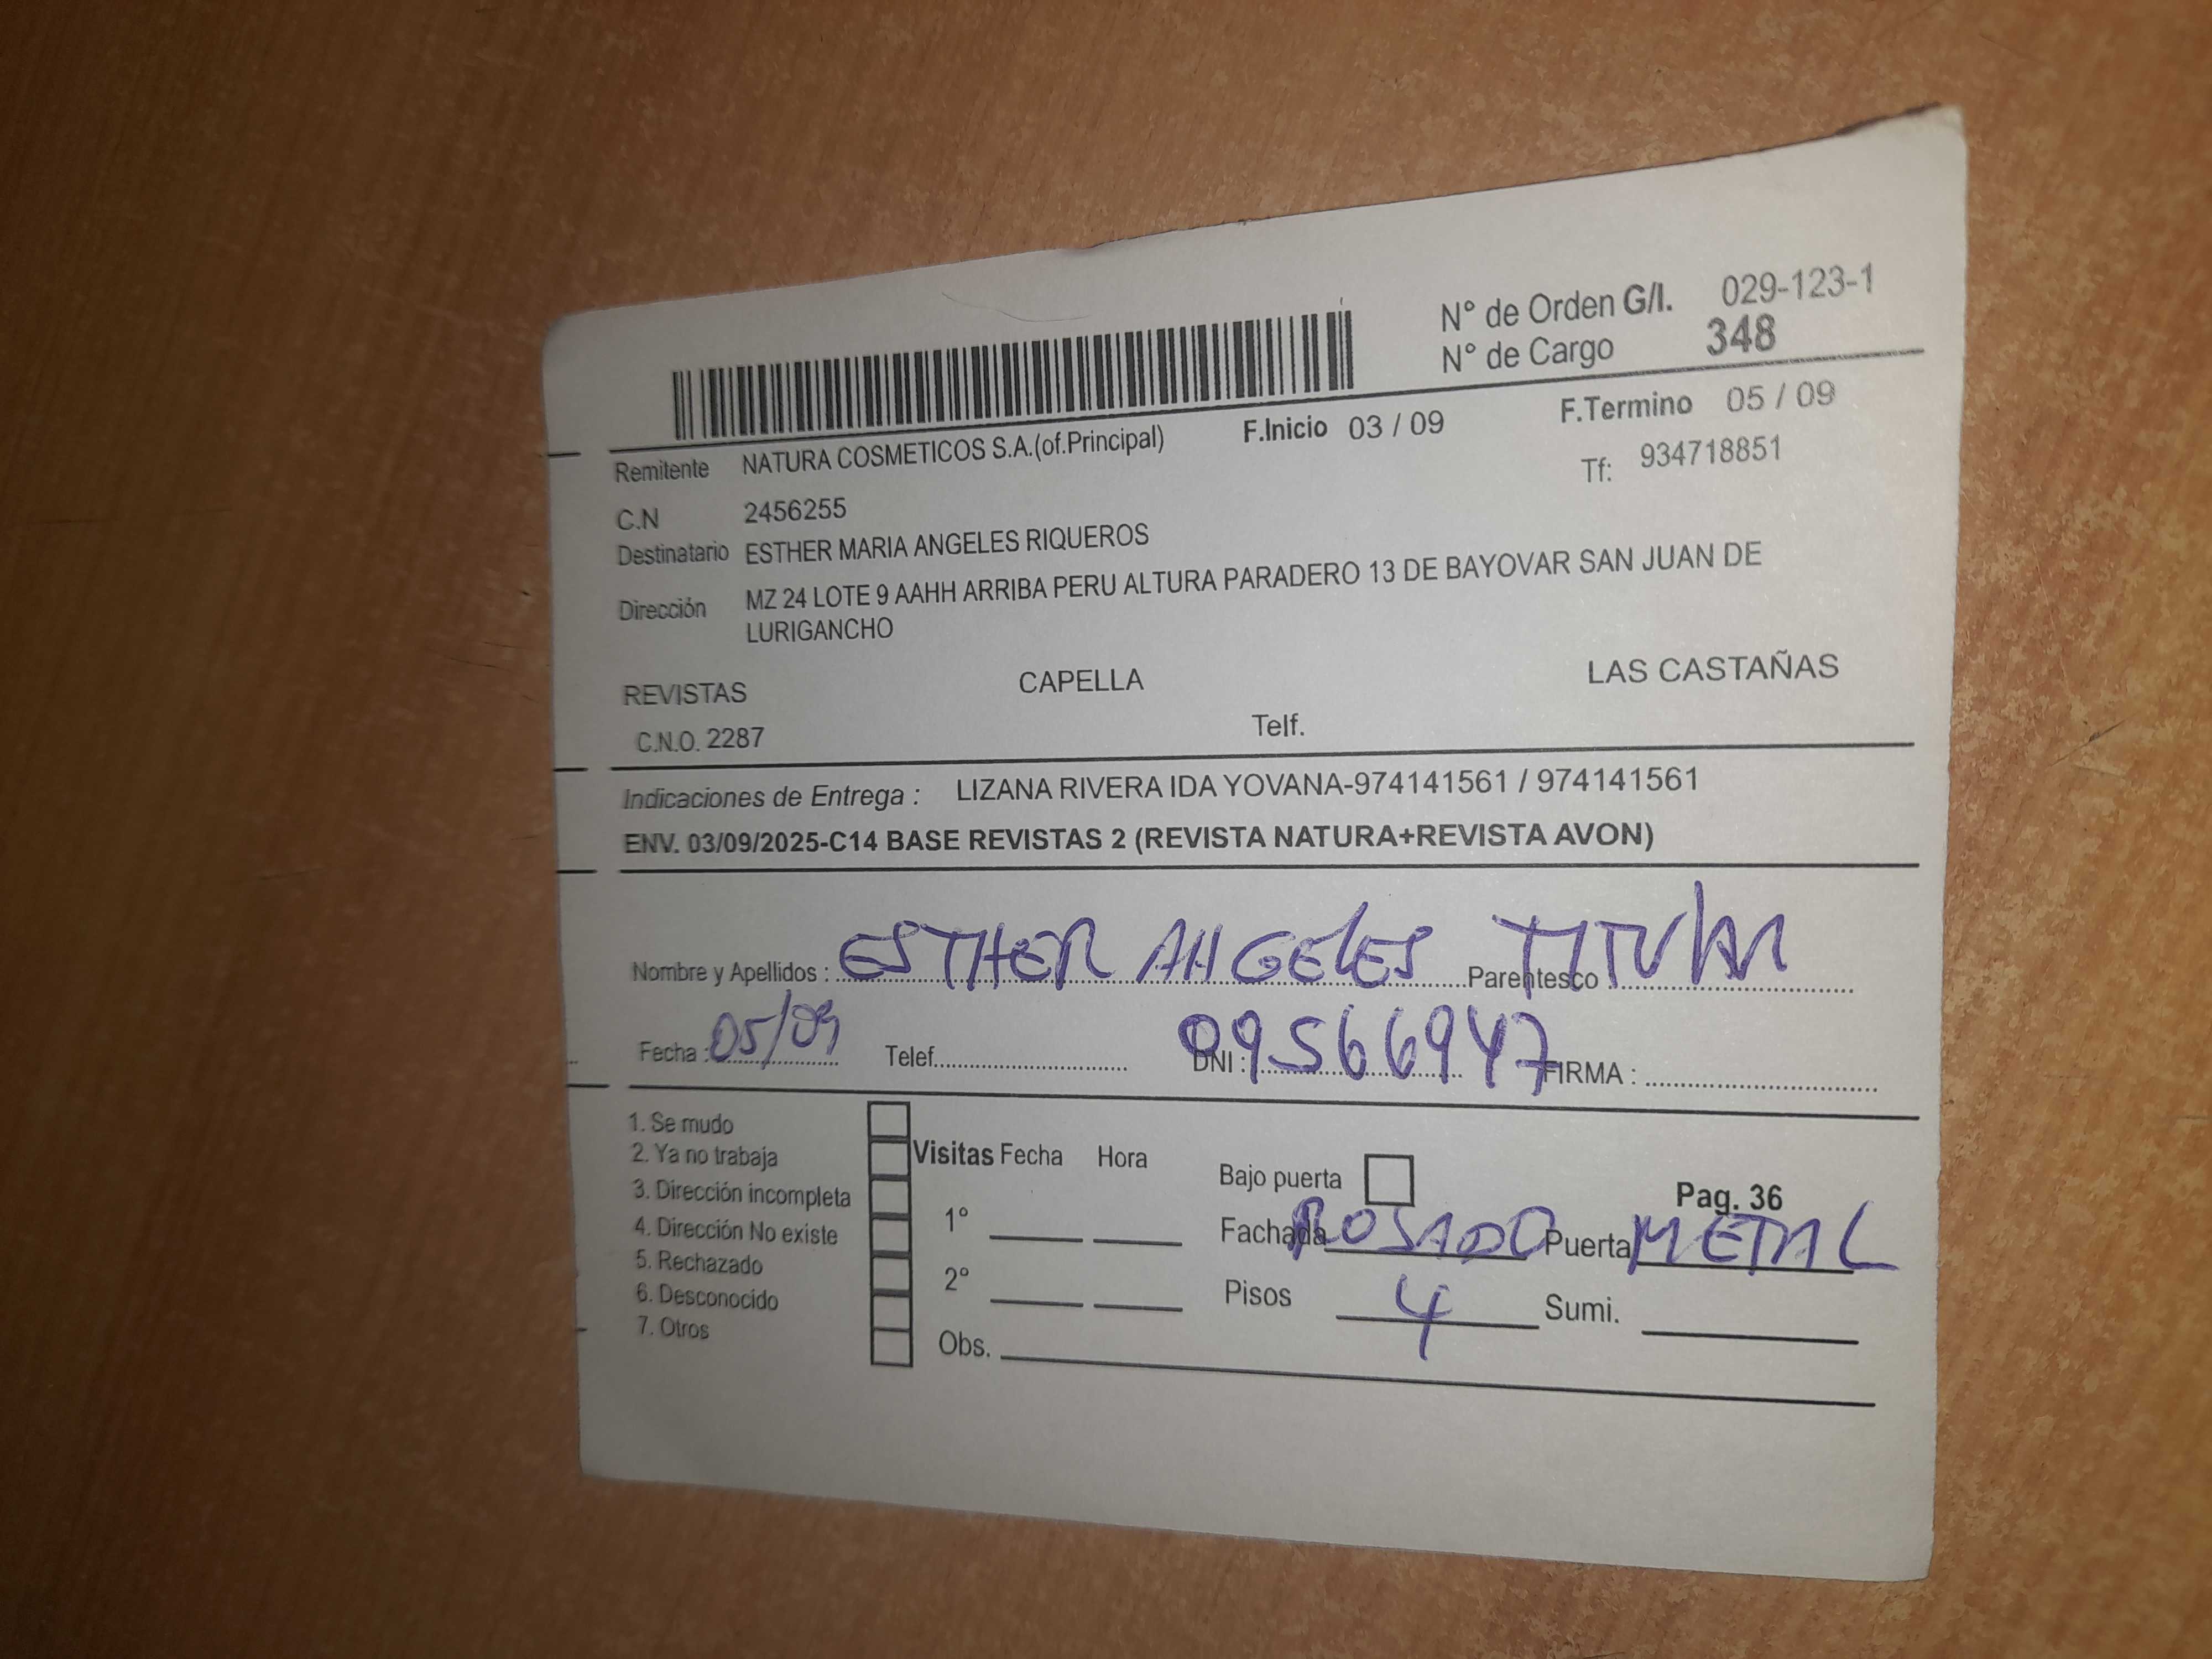 N° de Orden G/I. 029-123-1
N° de Cargo 348
F.Inicio 03 / 09 F.Termino 05 / 09
Remitente NATURA COSMETICOS S.A.(of.Principal) Tf: 934718851
C.N 2456255
Destinatario ESTHER MARIA ANGELES RIQUEROS
Dirección MZ 24 LOTE 9 AAHH ARRIBA PERU ALTURA PARADERO 13 DE BAYOVAR SAN JUAN DE
LURIGANCHO
REVISTAS CAPELLA LAS CASTAÑAS
C.N.O. 2287 Telf.
Indicaciones de Entrega : LIZANA RIVERA IDA YOVANA-974141561 / 974141561
ENV. 03/09/2025-C14 BASE REVISTAS 2 (REVISTA NATURA+REVISTA AVON)
Nombre y Apellidos : ESTHER ANGELES Parentesco : TITULAR
Fecha : 05/09 Telef. DNI : 09566947 FIRMA :
1. Se mudo
2. Ya no trabaja Visitas Fecha Hora Bajo puerta
3. Dirección incompleta Pag. 36
4. Dirección No existe 1° Fachada ROSADO Puerta METAL
5. Rechazado
6. Desconocido 2° Pisos 4 Sumi.
7. Otros Obs.